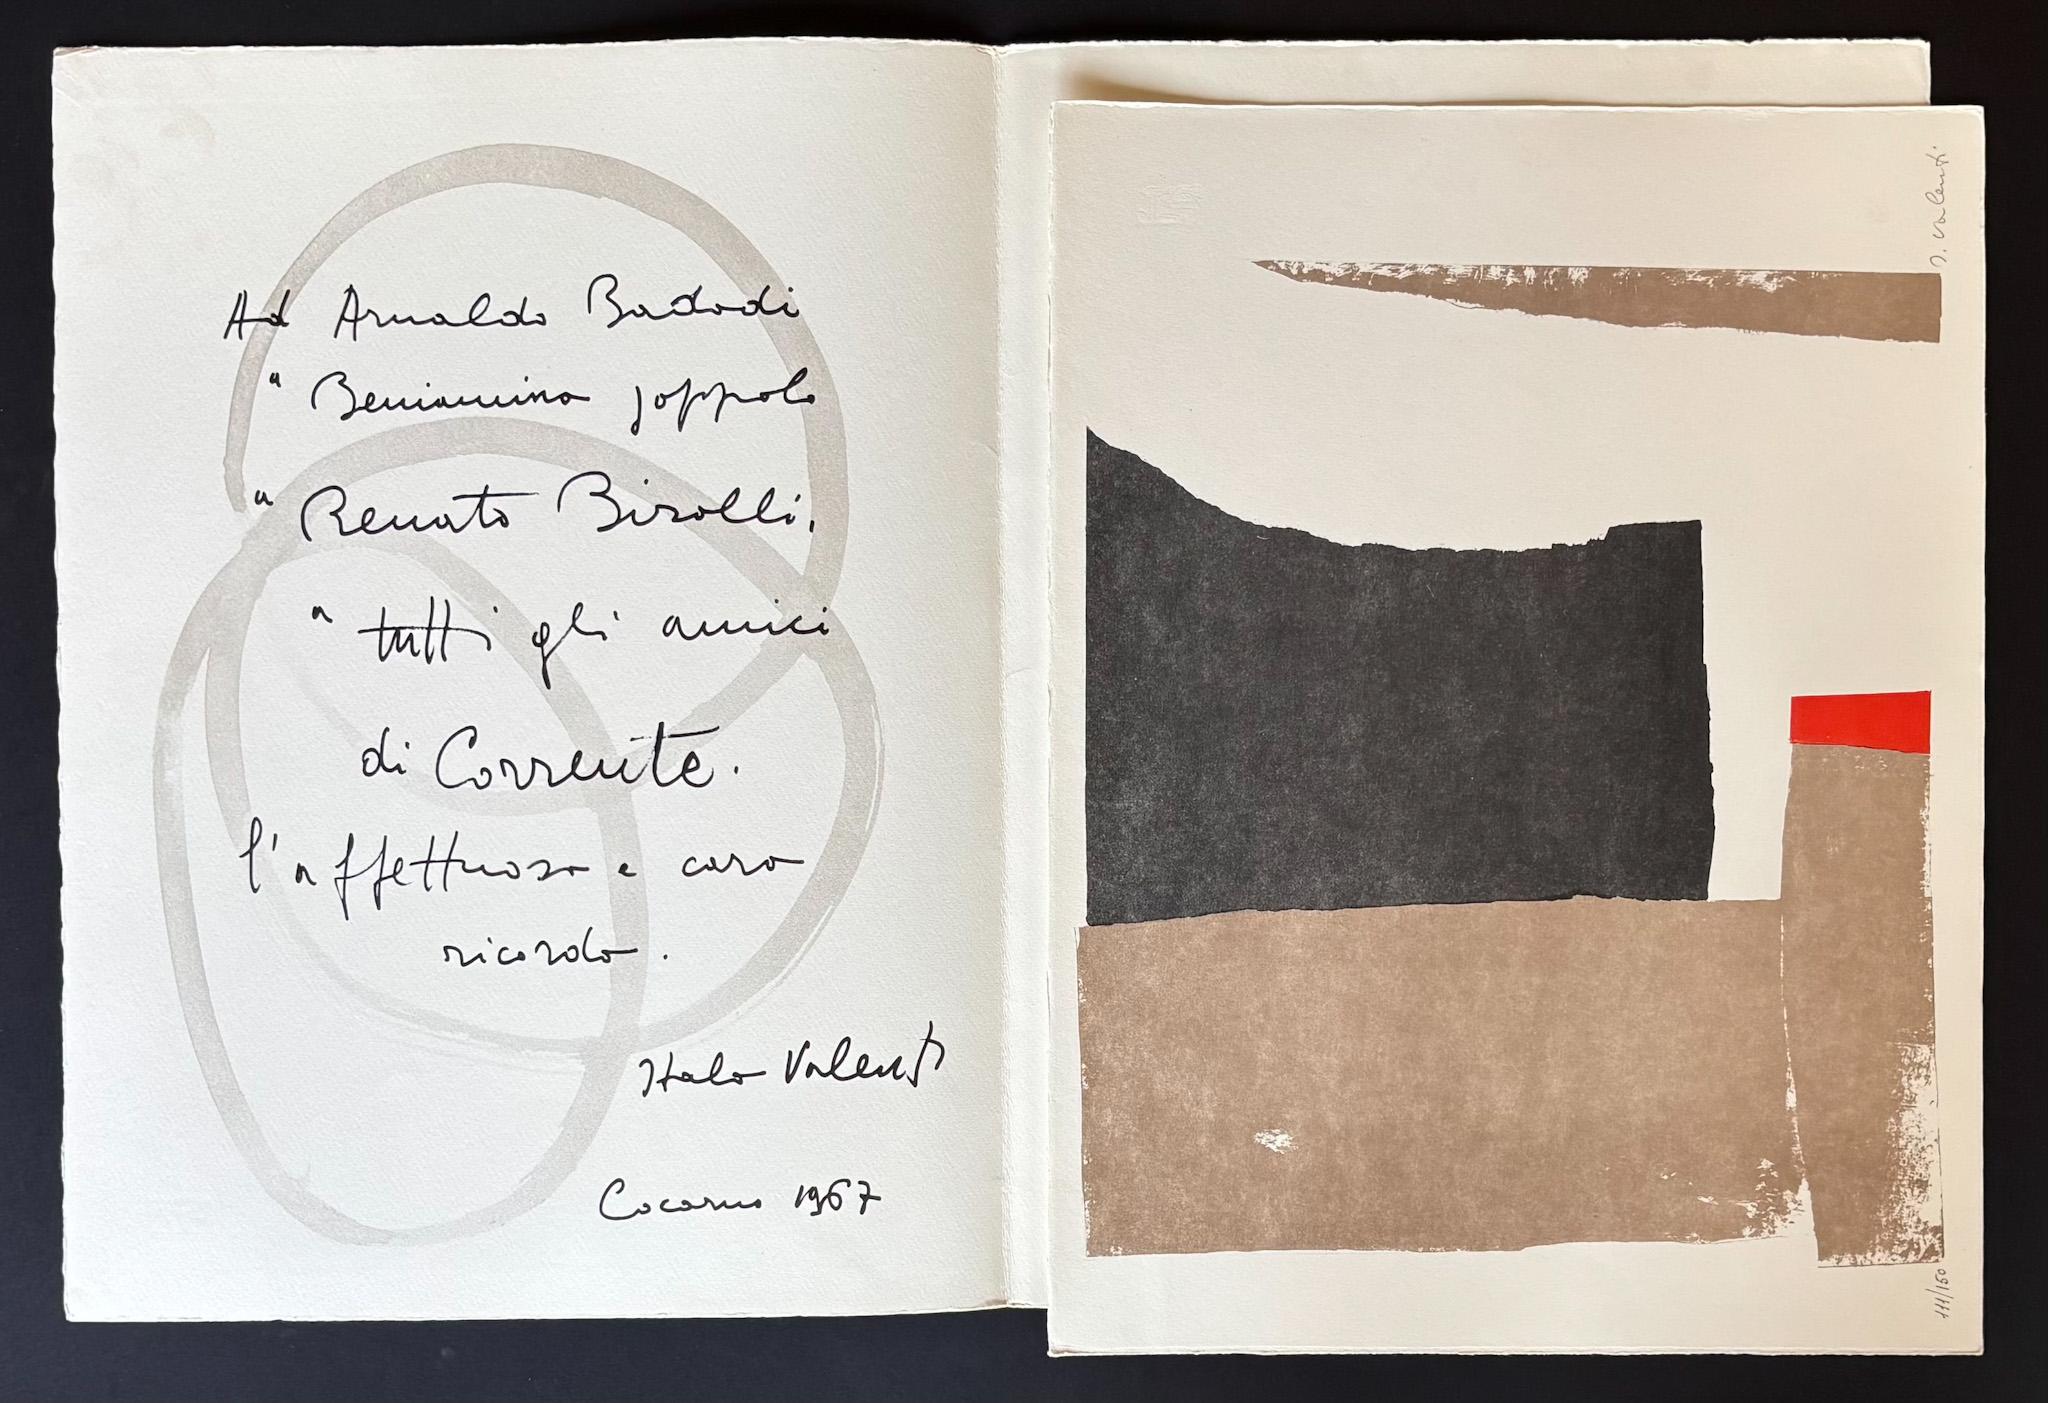 Ad Arnaldo Badodi
" Beniamino Joppolo
a Renato Birolli,
a tutti gli amici
di Corrente.
l'affettuoso e caro
ricordo.
Italo Valenti
Cocorno 1967
I. Valenti
111/150